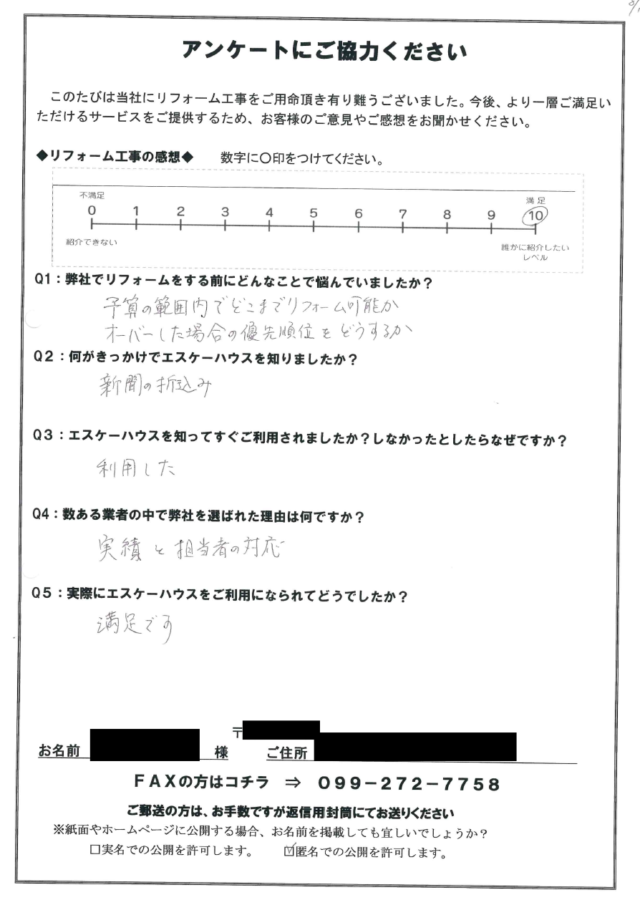 アンケートにご協力ください
このたびは当社にリフォーム工事をご用命頂き有り難うございました。今後、より一層ご満足い
ただけるサービスをご提供するため、お客様のご意見やご感想をお聞かせください。
◆リフォーム工事の感想◆　数字に〇印をつけてください。
不満足　満足
0 1 2 3 4 5 6 7 8 9 10
紹介できない　誰かに紹介したい
レベル
Q1：弊社でリフォームをする前にどんなことで悩んでいましたか？
予算の範囲内でどこまでリフォーム可能か
オーバーした場合の優先順位をどうするか
Q2：何がきっかけでエスケーハウスを知りましたか？
新聞の折込み
Q3：エスケーハウスを知ってすぐご利用されましたか？しなかったとしたらなぜですか？
利用した
Q4：数ある業者の中で弊社を選ばれた理由は何ですか？
実績と担当者の対応
Q5：実際にエスケーハウスをご利用になられてどうでしたか？
満足です
〒
お名前　様　ご住所
FAXの方はコチラ　⇒　099-272-7758
ご郵送の方は、お手数ですが返信用封筒にてお送りください
※紙面やホームページに公開する場合、お名前を掲載しても宜しいでしょうか？
□実名での公開を許可します。　☑匿名での公開を許可します。